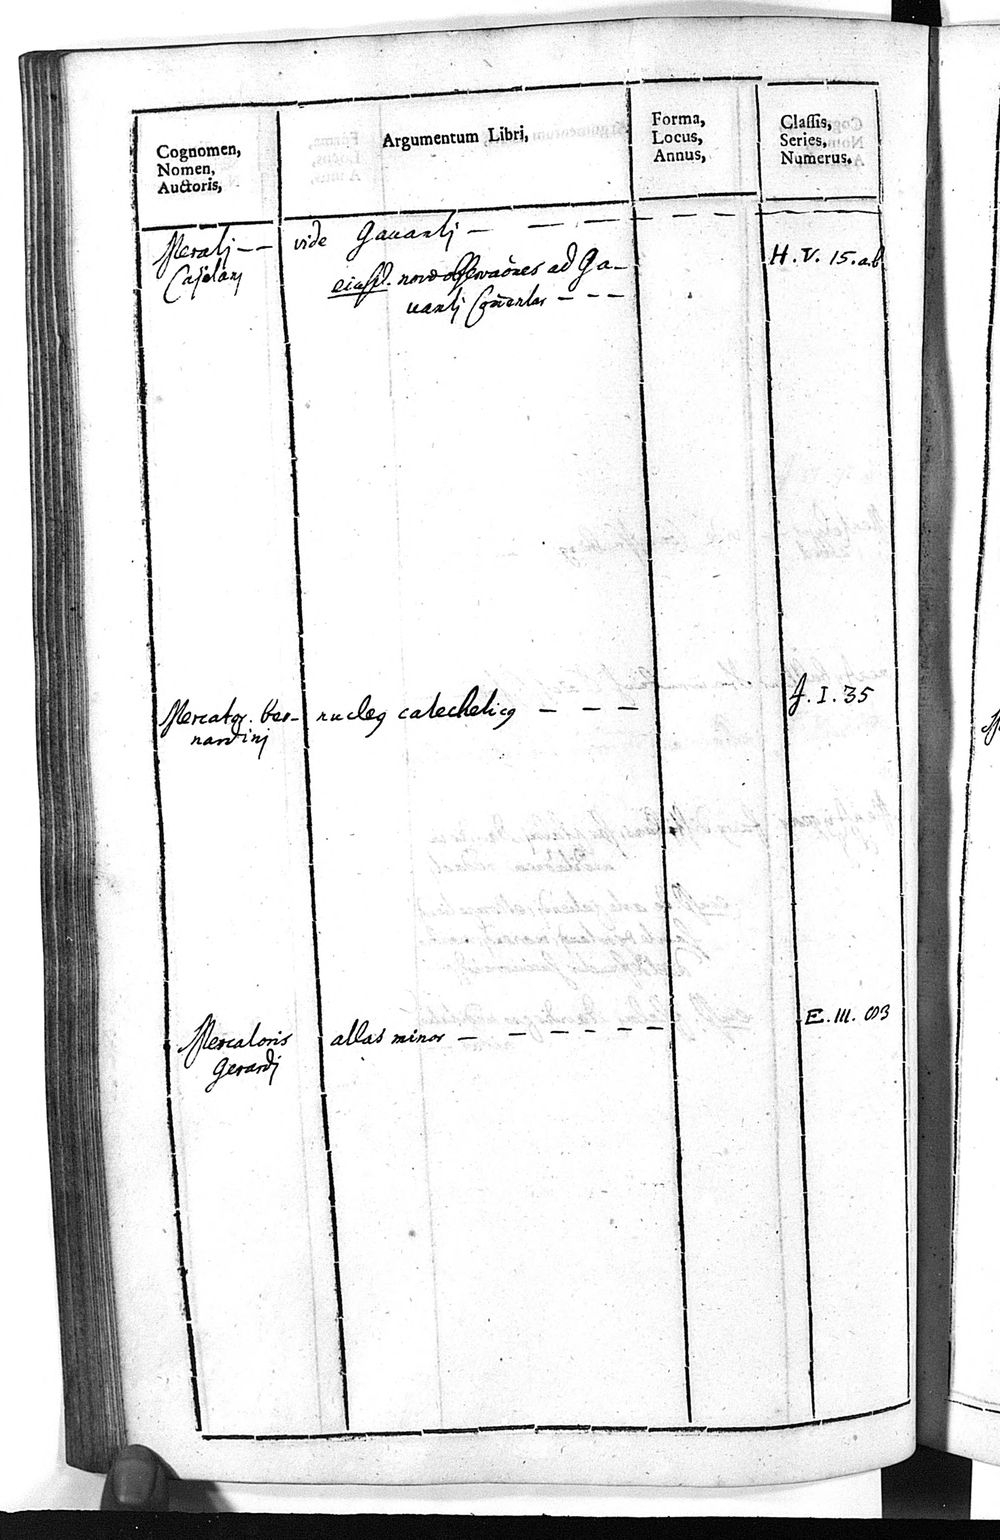 Cognomen,
Nomen,
Auctoris,
Argumentum Libri,
Forma,
Locus,
Annus,
Classis,
Series,
Numerus.
Meratj — — vide Gavantj — — — — — —
Cajetanj
eiusd. novæ observaōnes ad Ga-
vantj Com̄entar — — —
H. V. 15. a.b
Mercator. Ber-
nardinj
nucleq catecheticq — — —
f. I. 35
Mercatoris
Gerardj
atlas minor — — — — — —
E. III.